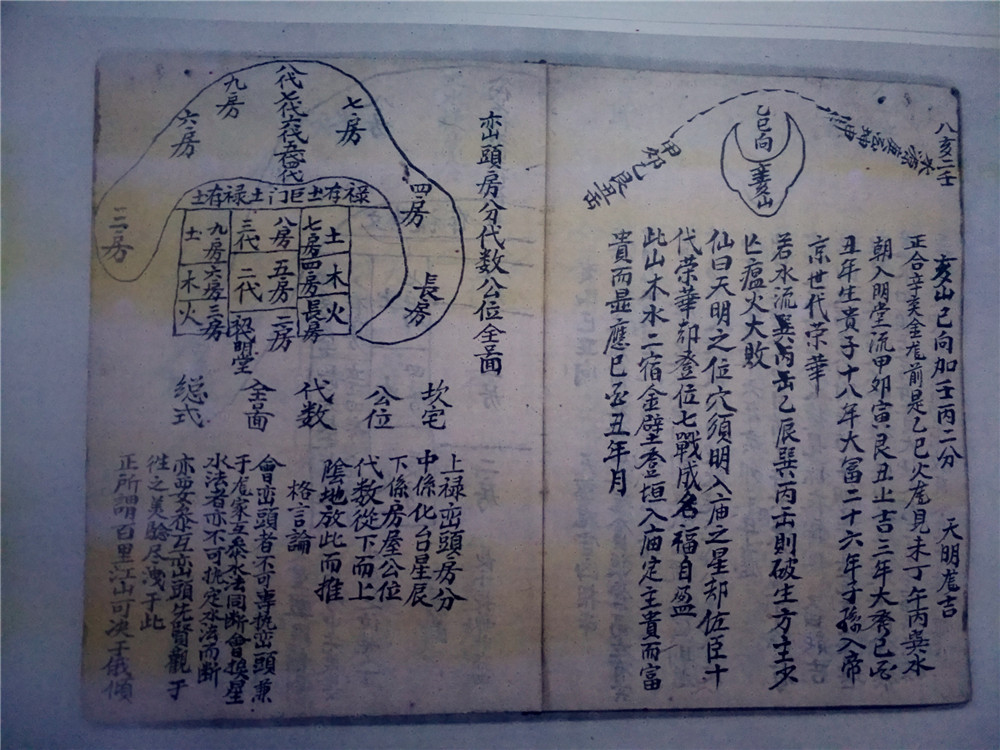 八亥二壬
乙巳向
亥山
甲卯乙艮丑
亥山巳向加壬丙二分 天明龙吉
正合辛亥金龙前是乙巳火龙見未丁午丙巽水
朝入明堂流甲卯寅艮丑止吉三年大
丑年生貴子十八年大富二十六年子孫入帝
京世代荣華
若水流巽丙缶乙辰巽丙缶則破生方主少
亡瘟火大敗
仙曰天明之位穴須明入庙之星却佐臣十
代荣華都登位七戰成名福自盈
此山木水二宿金壁登垣入庙定主貴而富
貴而显應巳酉丑年月
峦頭房分代数公位全畐
八代七代六代五代四代
九房
七房
六房
四房
三房
長房
土存禄土门巨土存禄
土 九房 三代 八房 七房 土
木 六房 二代 五房 四房 木
火 三房 初代明堂 二房 長房 火
坎宅
公位
代数
全畐
総式
上禄峦頭房分
中係化台星辰
下係房屋公位
代数從下而上
陰地放此而推
格言論
會曰峦頭者不可專执峦頭兼
于龙家互叅水法同断會挨星
水法者亦不可执定水法而断
亦要叅互峦頭先賢觀于
徃之美驗尽洩于此
正所謂百里江山可决于俄傾